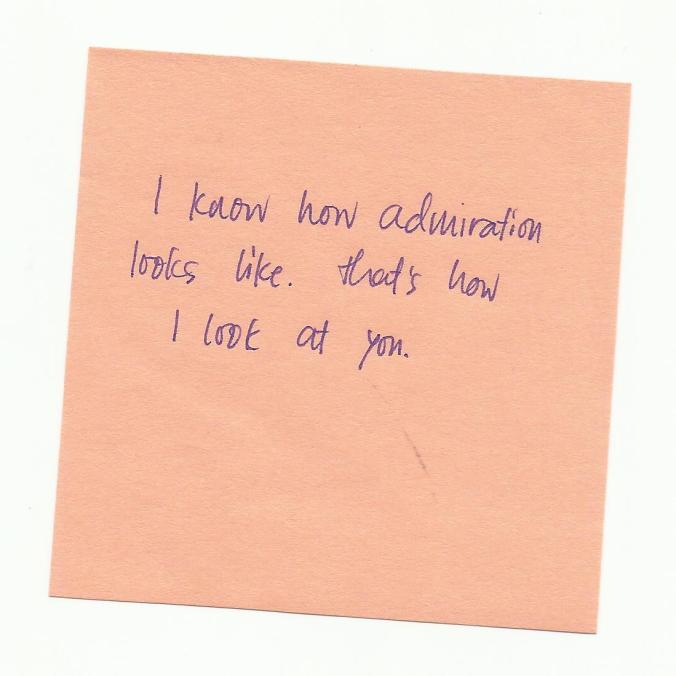 I know how admiration
looks like. that's how
I look at you.